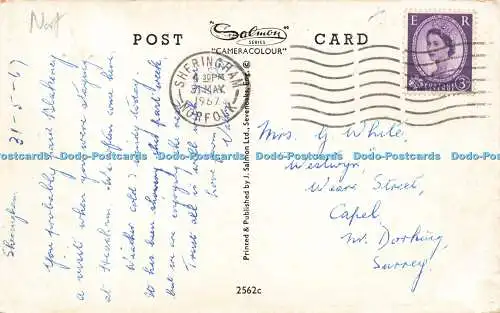 Norf
POST
"Salmon"
SERIES
"CAMERACOLOUR"
CARD
SHERINGHAM
4 30PM
31 MAY
1967
NORFOLK
E R
3D
Sheringham
31-5-67
You probably paid Blakeney
a visit when you were staying
at Hunstan. We often come here.
Weather cold & windy today.
It has been showery this past week,
but we are enjoying the rest.
Trust all is well
Love from
Mrs. G White
Westwyn
Weare Street,
Capel
Nr. Dorking,
Surrey.
Printed & Published by J. Salmon Ltd., Sevenoaks, Eng. ©
2562c
Dodo-Postcards Dodo-Postcards Dodo-Postcards Dodo-Postcards